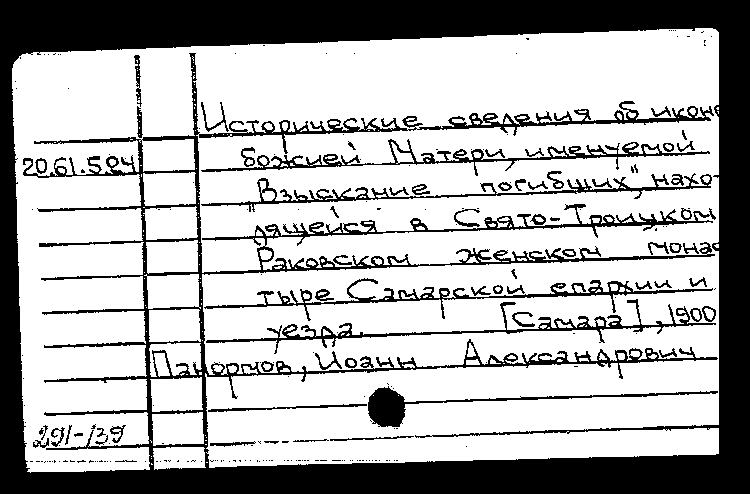 Исторические сведения об иконе
20.61.5.24 божией Матери, именуемой
„Взыскание погибших", нахо-
дящейся в Свято-Троицком
Раковском женском монас
тыре Самарской епархии и
уезда. [Самара], 1900
Панормов, Иоанн Александрович
291-/39